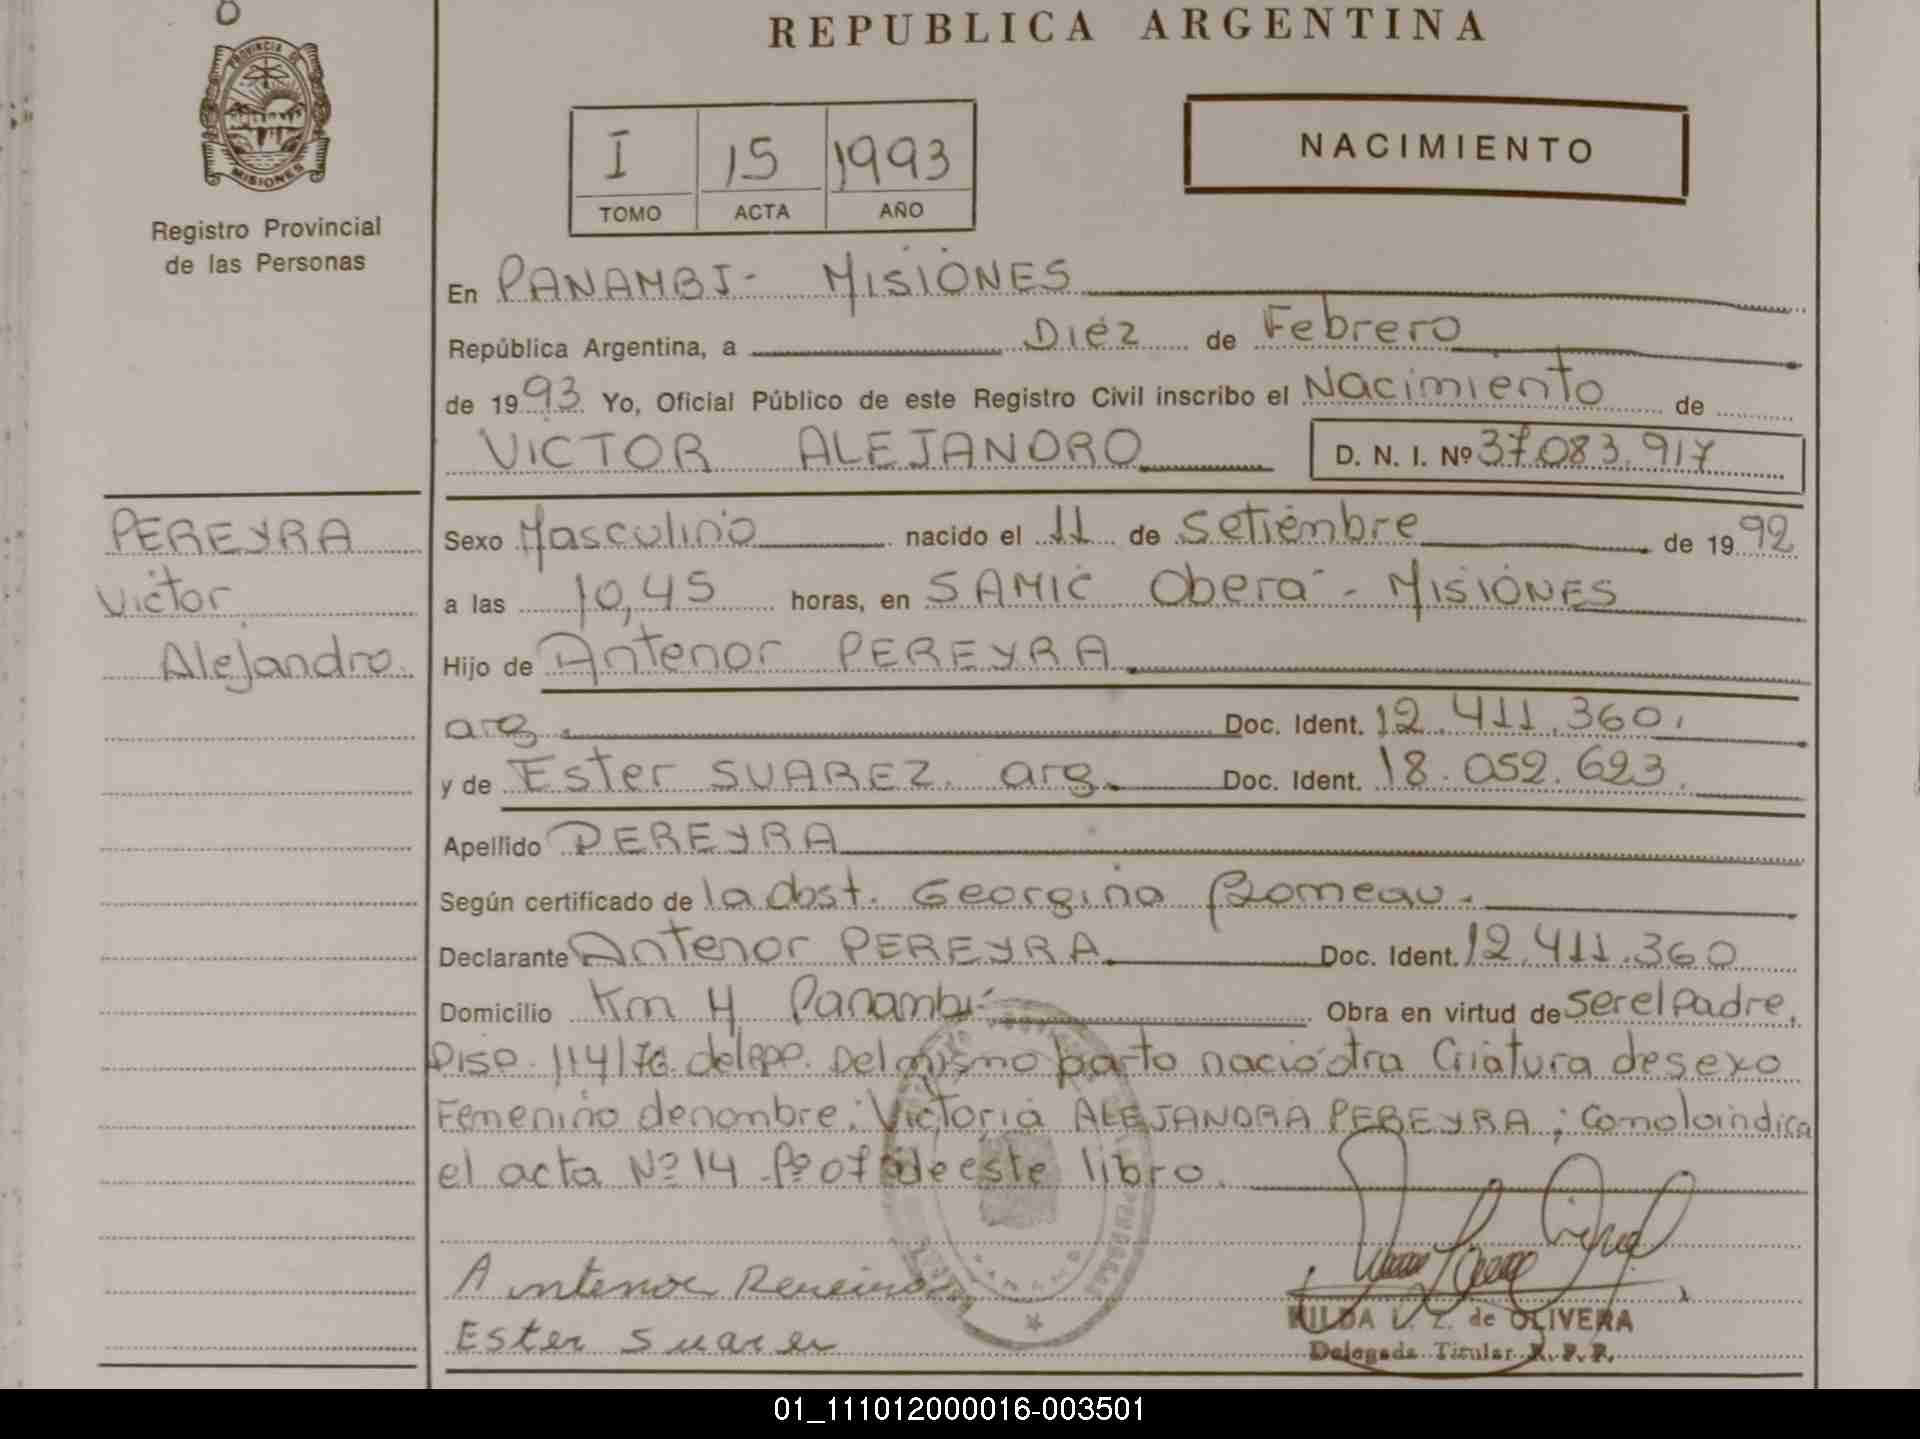 8
REPUBLICA ARGENTINA
PROVINCIA DE
MISIONES
Registro Provincial
de las Personas
I 15 1993
TOMO ACTA AÑO
NACIMIENTO
En PANAMBI- MISIONES
República Argentina, a Diez de Febrero
de 1993 Yo, Oficial Público de este Registro Civil inscribo el Nacimiento de
VICTOR ALEJANDRO D. N. I. Nº 37.083.917
PEREYRA
Victor
Alejandro.
Sexo Masculino nacido el 11 de Setiembre de 1992
a las 10,45 horas, en SAMIC Oberá - MISIONES
Hijo de Antenor PEREYRA
arg. Doc. Ident. 12.411.360.
y de Ester SUAREZ. arg. Doc. Ident. 18.052.623.
Apellido PEREYRA
Según certificado de la obst. Georgina Romeau.
Declarante Antenor PEREYRA Doc. Ident. 12.411.360
Domicilio Km 4 Panambí Obra en virtud de ser el Padre.
Disp. 114/76 del RPP. Del mismo parto nació otra Criatura de sexo
Femenino de nombre: Victoria ALEJANDRA PEREYRA; Como lo indica
el acta Nº 14 Fº 07 de este libro.
Antenor Pereira
Ester Suarez
HILDA L. Z. de OLIVERA
Delegada Titular R. P. P.
01_111012000016-003501